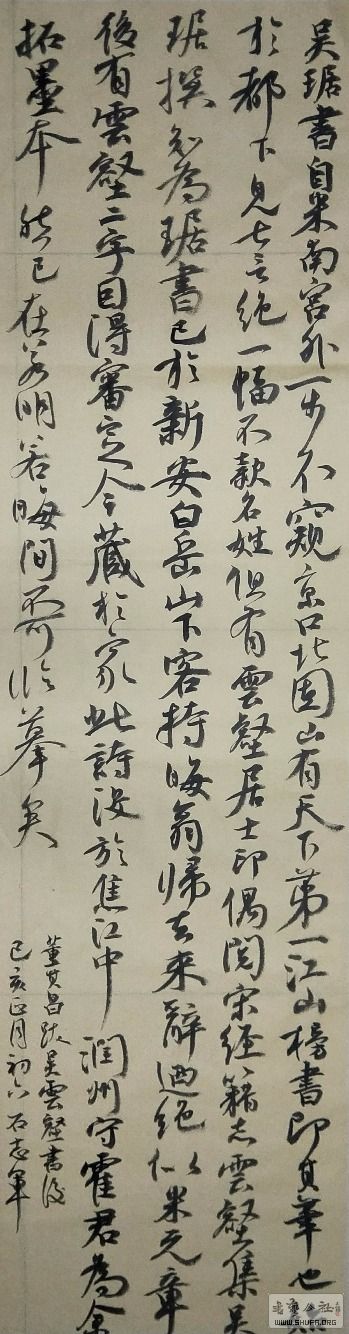 吴琚書自米南宫外一步不窺京口北固山有天下第一江山榜書即其筆也
於都下見七言絶一幅不款名姓但有雲壑居士印偶閲宋經籍志雲壑集吴
琚撰知為琚書已於新安白岳山下客持晦翁帰去来辭迺絶似米元章
後有雲壑二字因得審定今藏於家此詩没於焦江中潤州守霍君為余
拓墨本然已在若明若晦間不可臨摹矣
董其昌跋吴雲壑書後
己亥正月初六石志軍
書藝公社
WWW.SHUFA.ORG